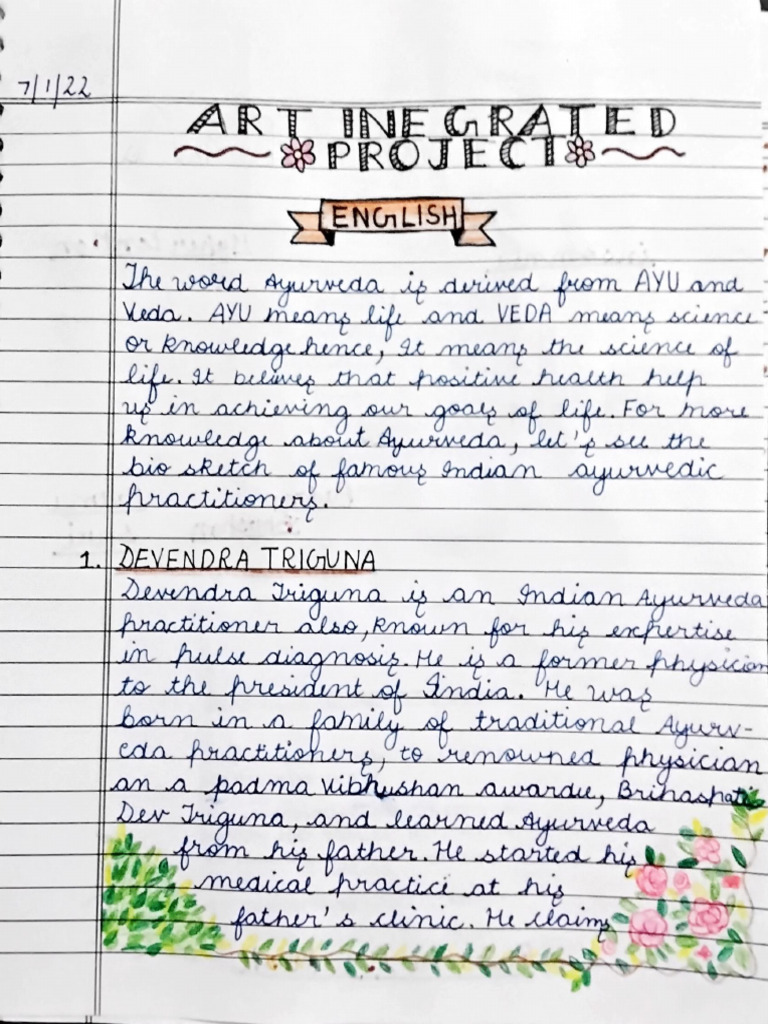 7/1/22
ART INEGRATED
PROJECT
ENGLISH
The word Ayurveda is derived from AYU and
Veda. AYU means life and VEDA means science
or knowledge hence, It means the science of
life. It believes that positive health help
us in achieving our goals of life. For more
knowledge about Ayurveda, let's see the
bio sketch of famous Indian ayurvedic
practitioners.
1. DEVENDRA TRIGUNA
Devendra Triguna is an Indian Ayurveda
practitioner also, known for his expertise
in pulse diagnosis. He is a former physician
to the president of India. He was
born in a family of traditional Ayurv-
eda practitioners, to renowned physician
an a padma Vibhushan awardie, Brihaspati
Dev Triguna, and learned Ayurveda
from his father. He started his
medical practice at his
father's clinic. He claims